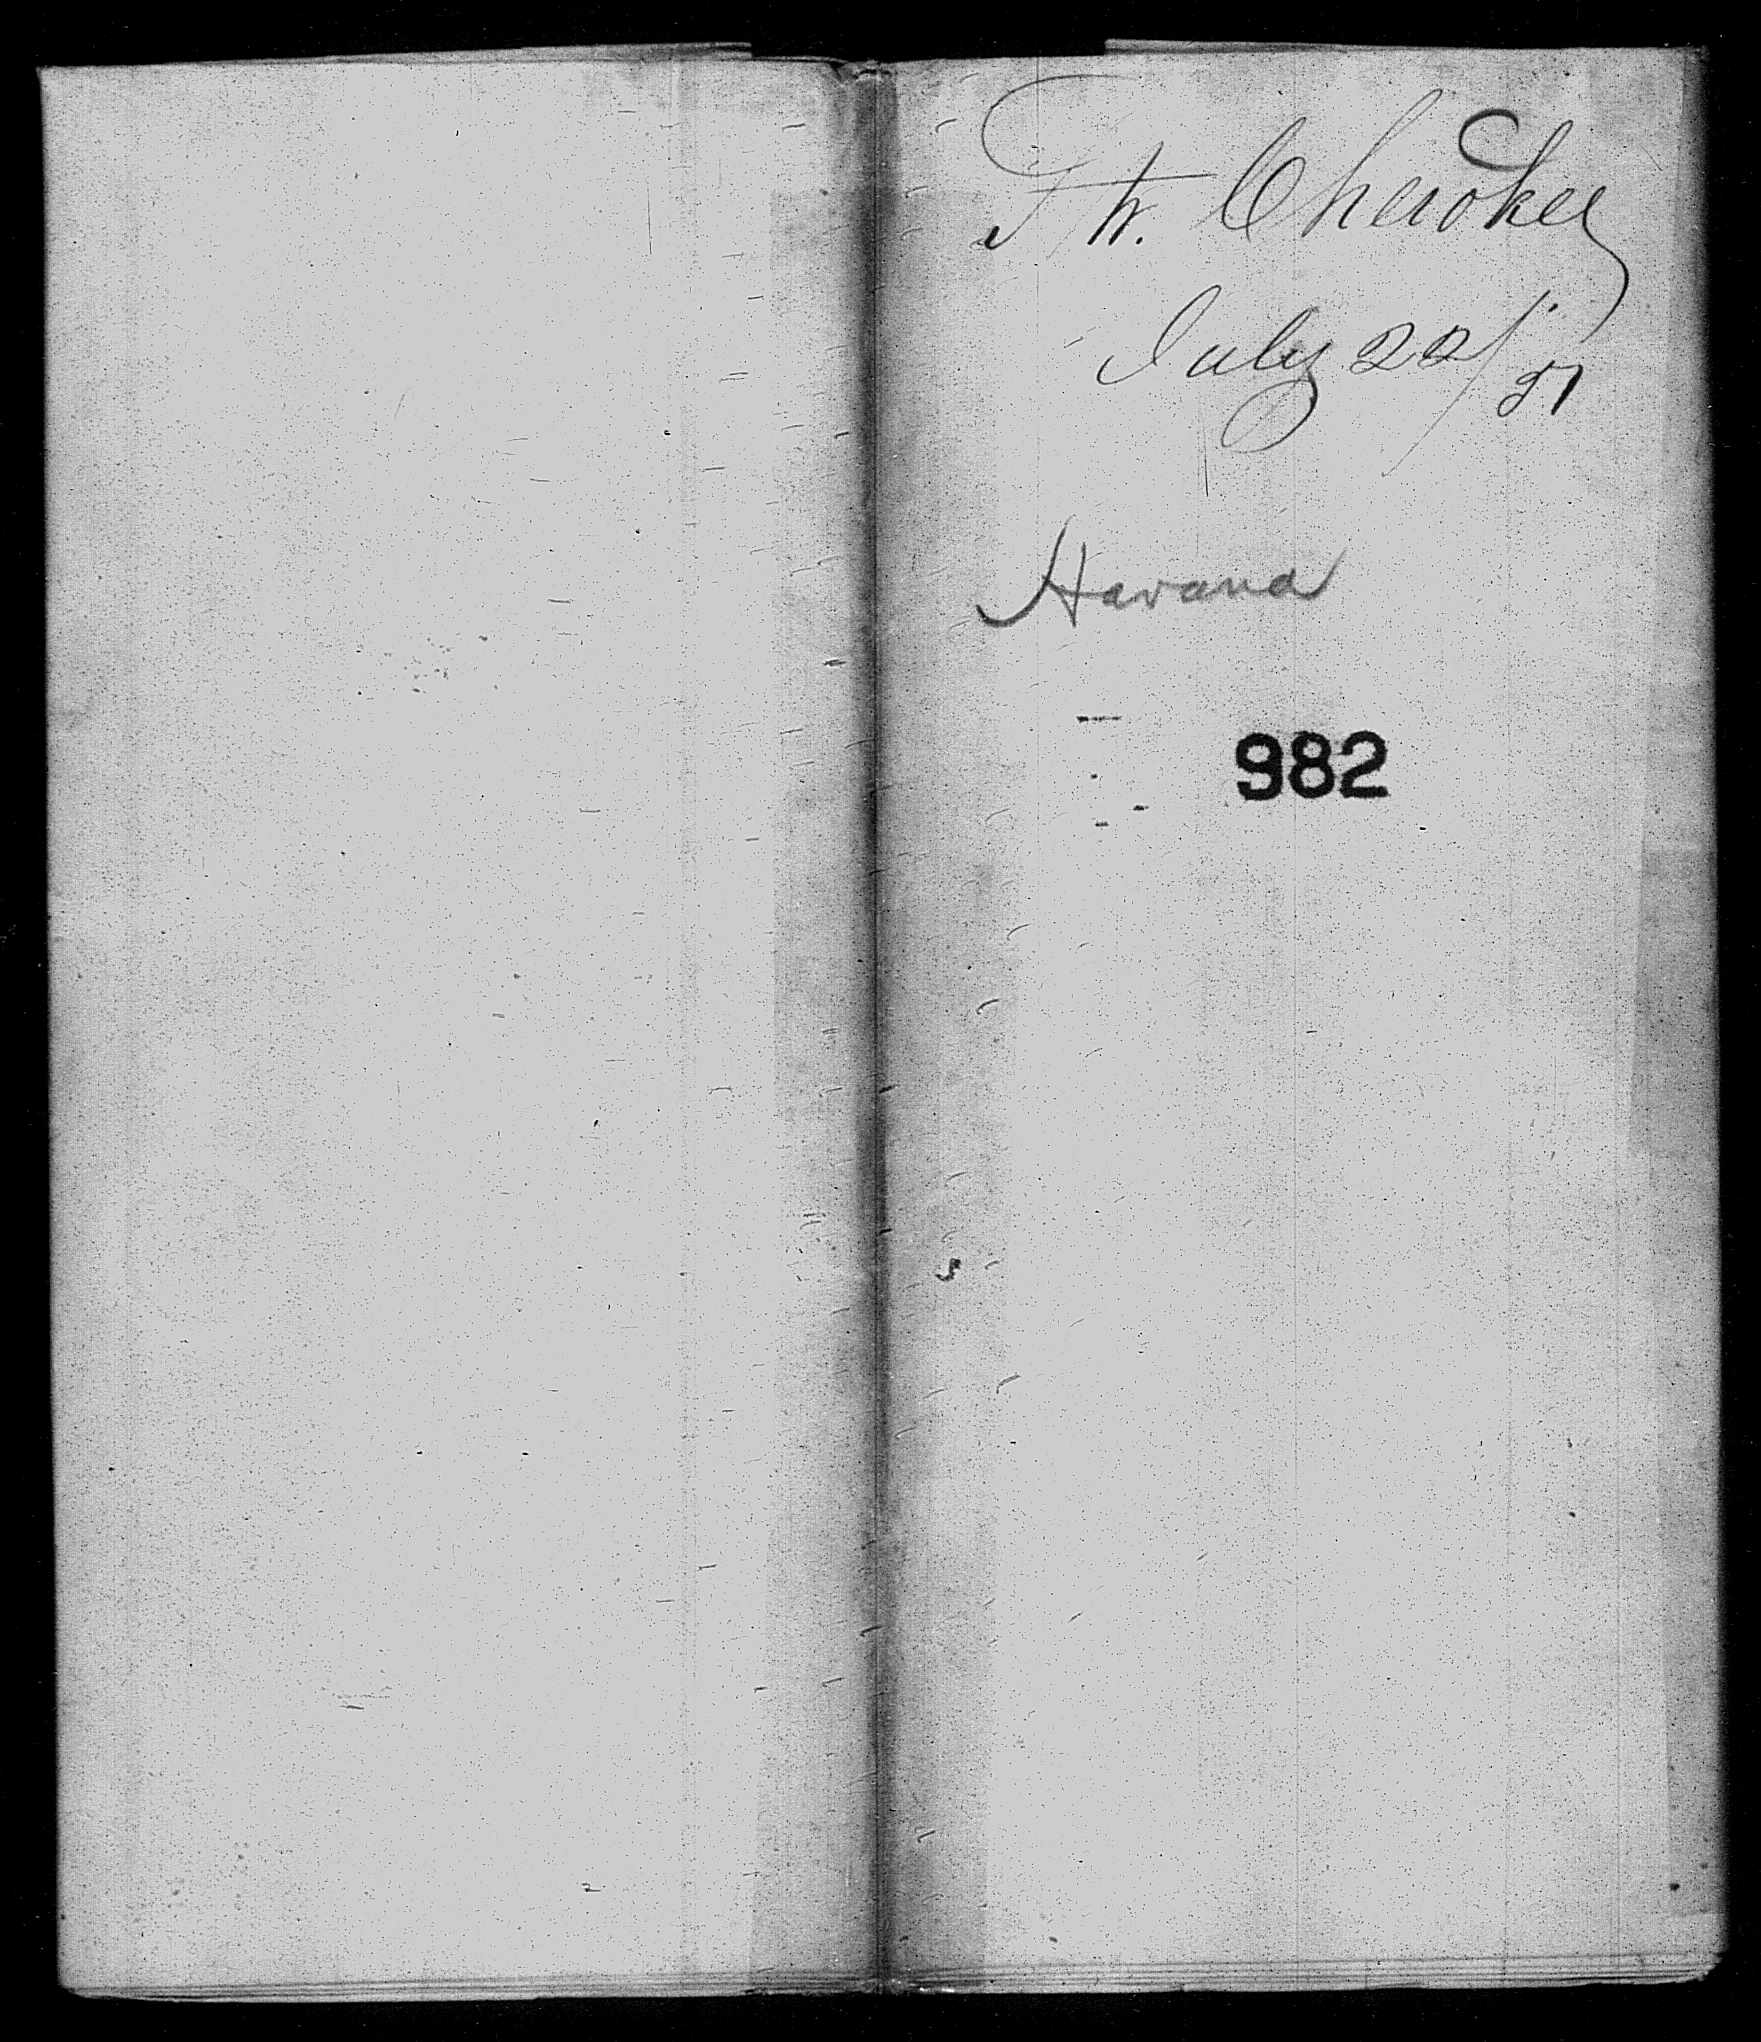 Str. Cherokee
July 22/51
Havana
982